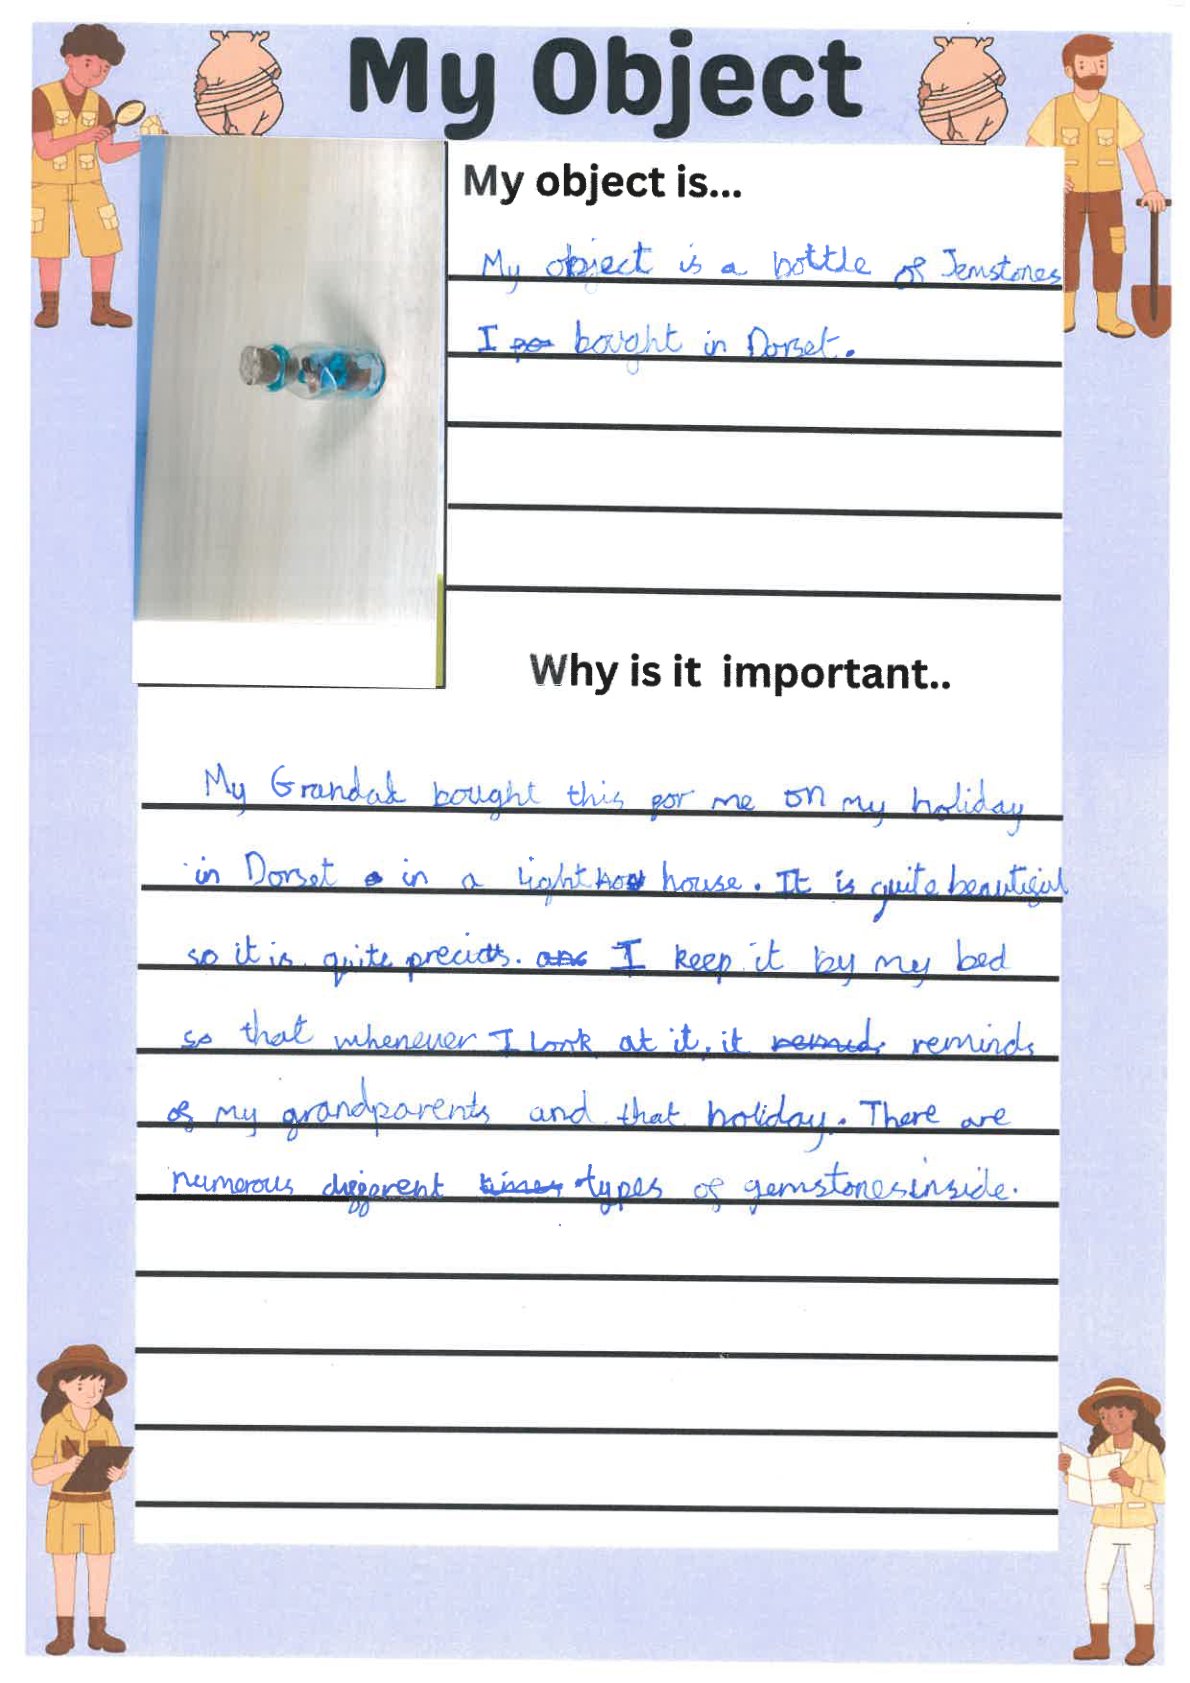 My Object
My object is...
My object is a bottle of Jemstones
I bought in Dorset.
Why is it important..
My Grandad bought this for me on my holiday
in Dorset in a light house. It is quite beautiful
so it is quite precious. I keep it by my bed
so that whenever I look at it, it reminds
of my grandparents and that holiday. There are
numerous different types of gemstones inside.